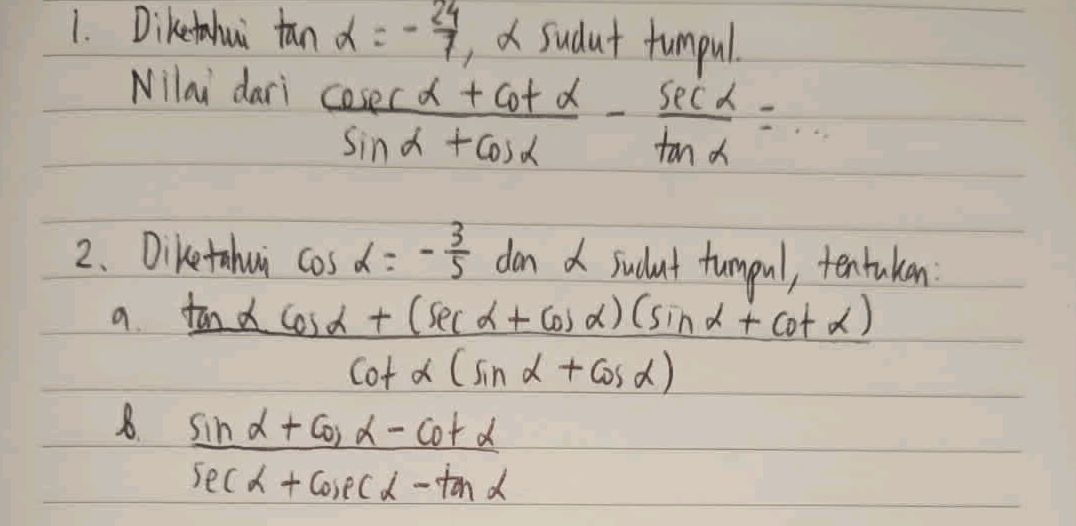 1. Diketahui tan α = -24/7, α sudut tumpul.
Nilai dari (cosec α + cot α)/(sin α + cos α) - (sec α)/(tan α) = ...
2. Diketahui cos α = -3/5 dan α sudut tumpul, tentukan:
a. (tan α cos α + (sec α + cos α)(sin α + cot α))/(cot α (sin α + cos α))
b. (sin α + cos α - cot α)/(sec α + cosec α - tan α)